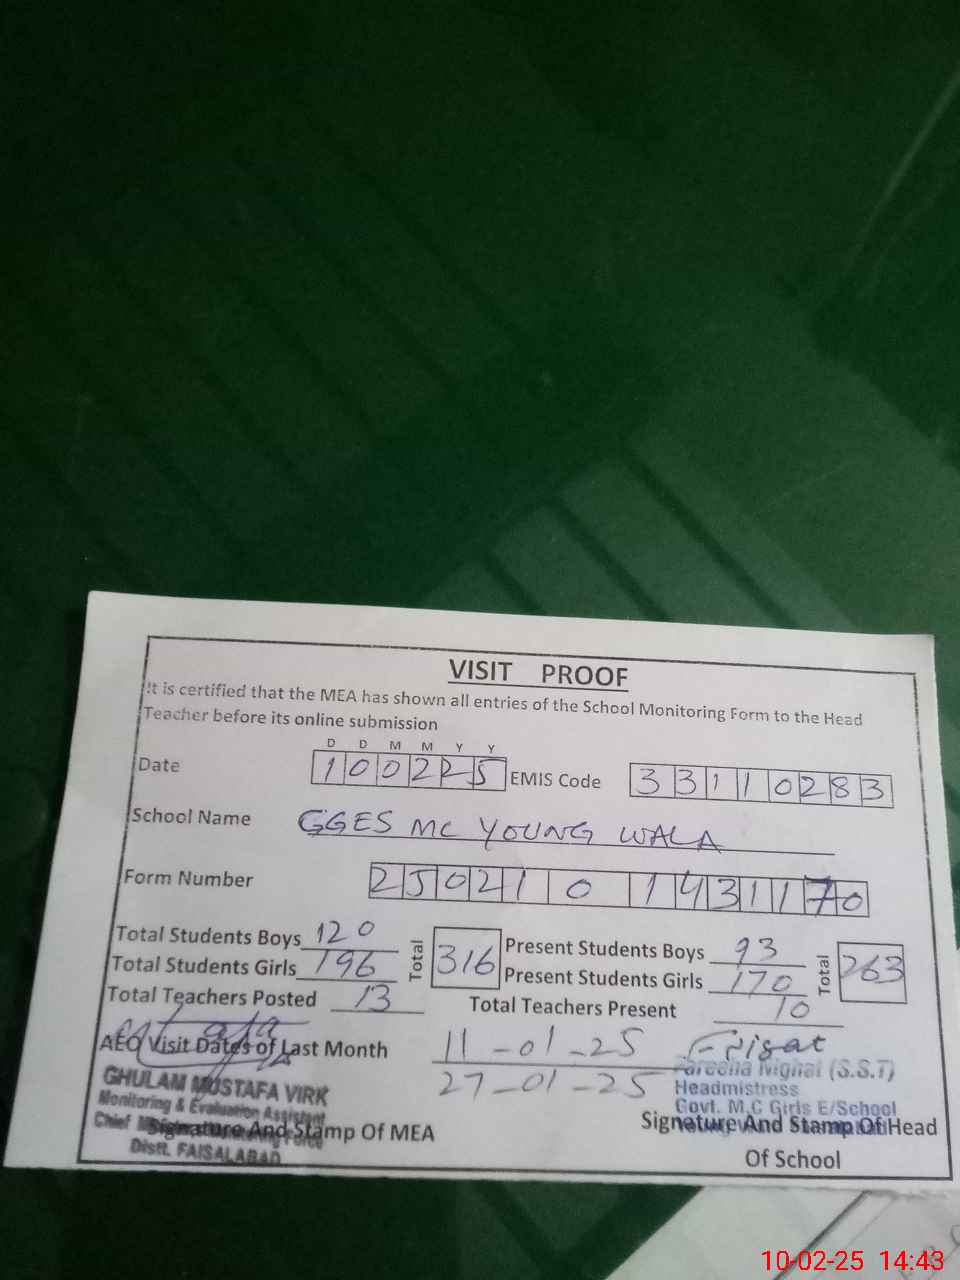 VISIT PROOF
It is certified that the MEA has shown all entries of the School Monitoring Form to the Head
Teacher before its online submission
D D M M Y Y
Date 100225 EMIS Code 33110283
School Name GGES MC YOUNG WALA
Form Number 2502101431170
Total Students Boys 120 Total 316 Present Students Boys 93 Total 263
Total Students Girls 196 Present Students Girls 170
Total Teachers Posted 13 Total Teachers Present 10
AEO Visit Dates of Last Month 11-01-25
27-01-25
GHULAM MUSTAFA VIRK
Monitoring & Evaluation Assistant
Chief
Distt. FAISALABAD
Signature And Stamp Of MEA
Nighat (S.S.T)
Headmistress
Govt. M.C Girls E/School
Signature And Stamp Of Head
Of School
10-02-25 14:43